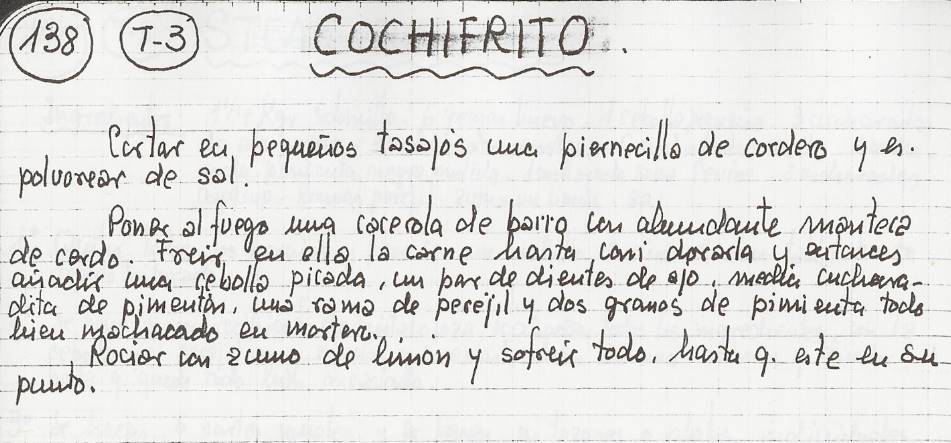 138 T-3 COCHIFRITO.
Cortar en pequeños tasajos una piernecilla de cordero y es-
polvorear de sal.
Poner al fuego una cacerola de barro con abundante manteca
de cerdo. Freir en ella la carne hasta casi dorarla y entonces
añadir una cebolla picada, un par de dientes de ajo, media cuchara-
dita de pimentón, una rama de perejil y dos granos de pimienta todo
bien machacado en mortero.
Rociar con zumo de limon y sofreir todo, hasta q. este en su
punto.